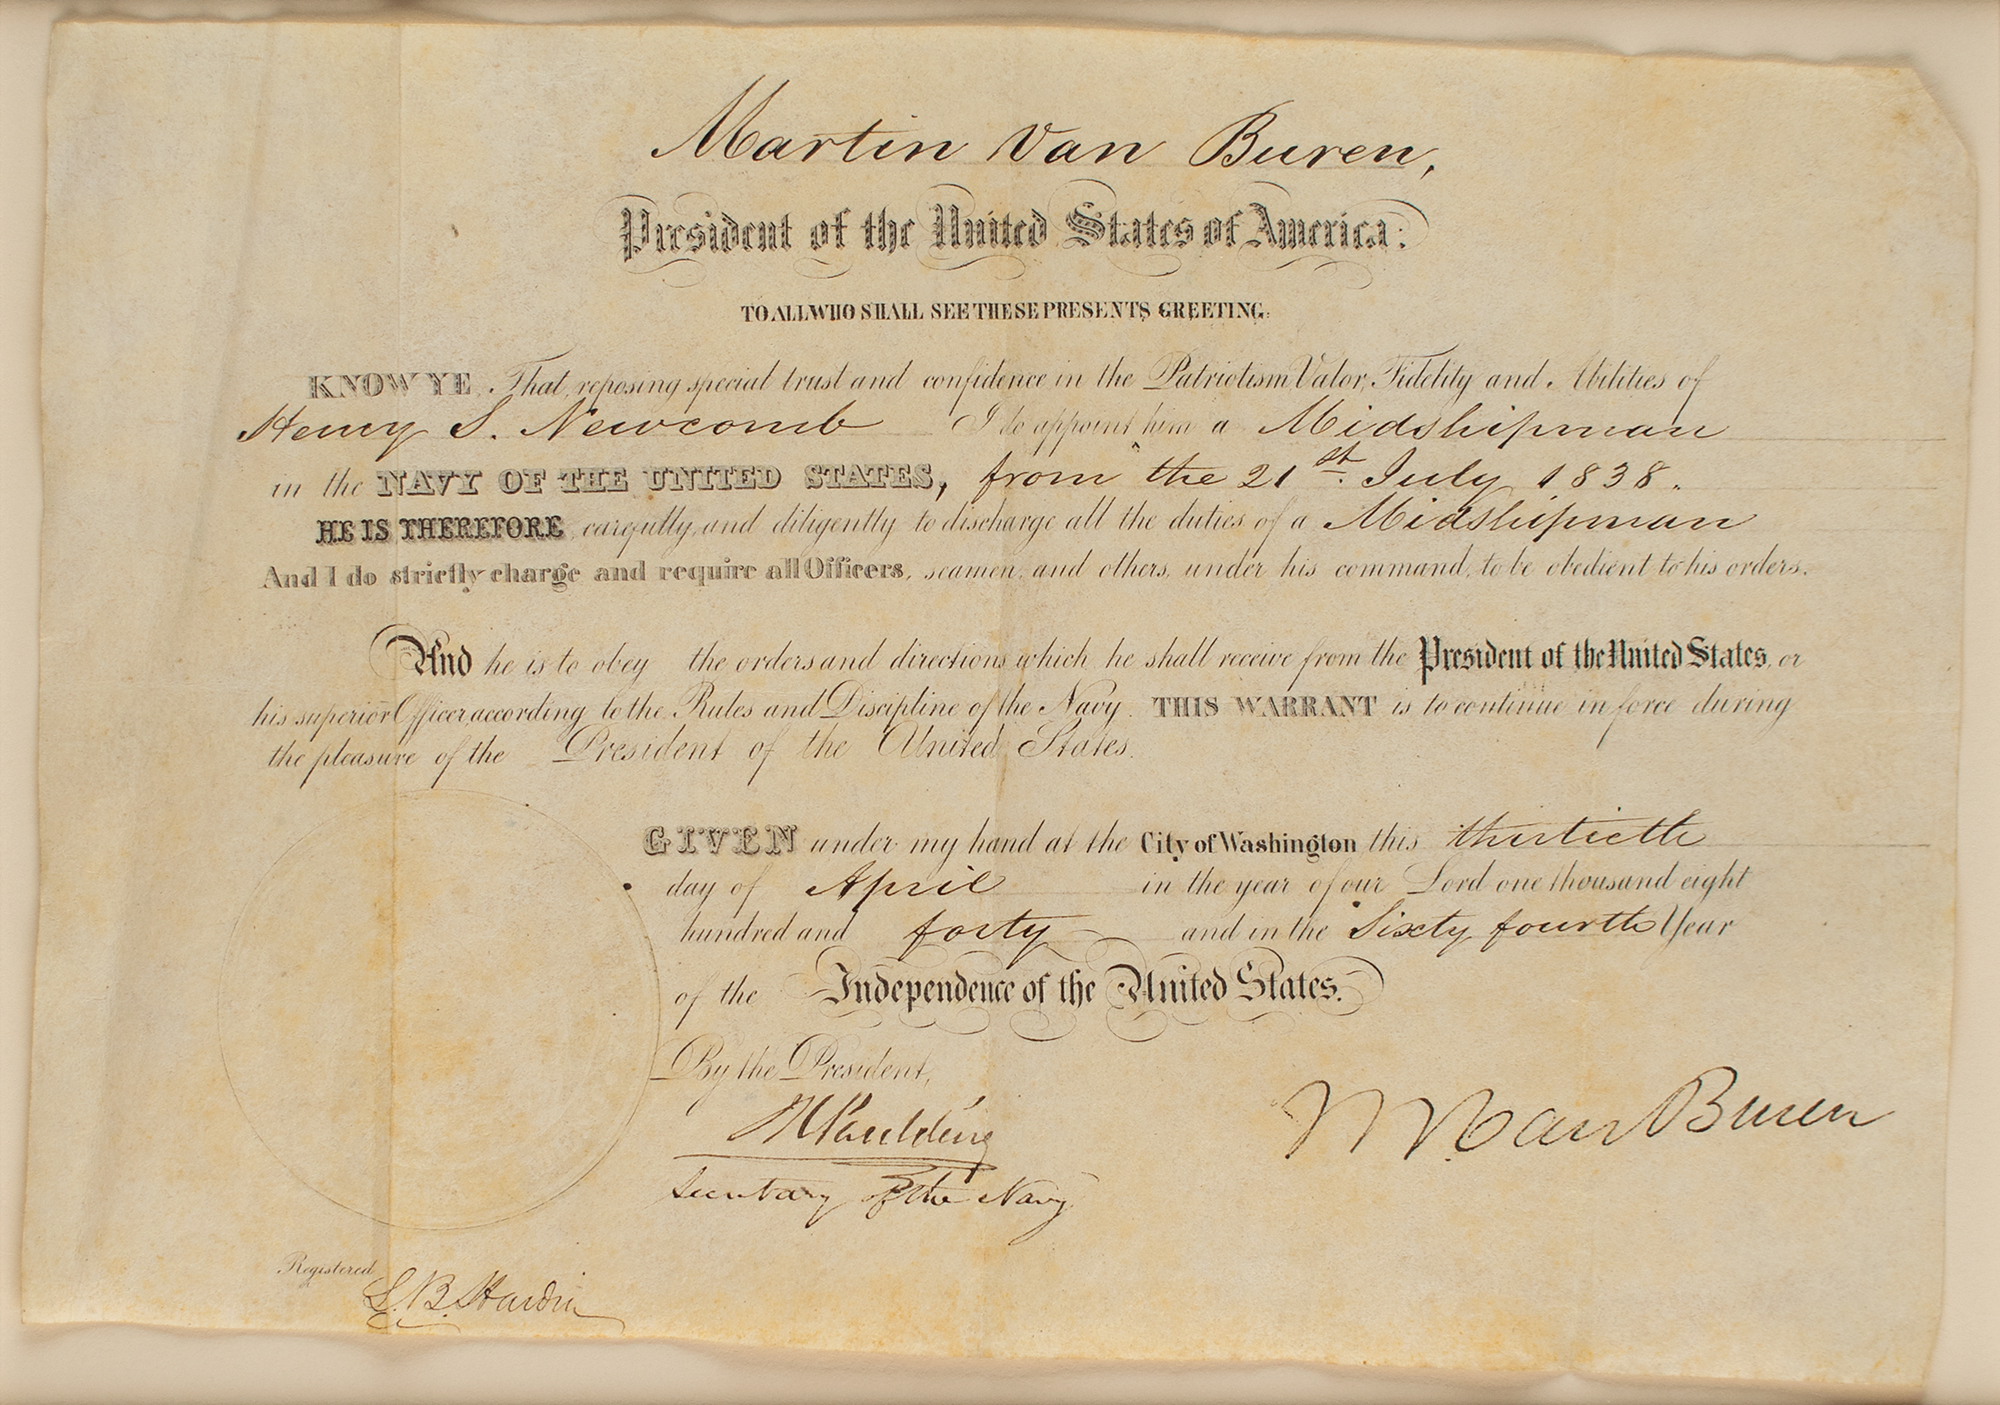 Martin Van Buren,
President of the United States of America:
TO ALL WHO SHALL SEE THESE PRESENTS GREETING:
KNOW YE, That, reposing special trust and confidence in the Patriotism, Valor, Fidelity and Abilities of
Henry S. Newcomb I do appoint him a Midshipman
in the NAVY OF THE UNITED STATES, from the 21st July 1838.
HE IS THEREFORE, carefully, and diligently to discharge all the duties of a Midshipman
And I do strictly charge and require all Officers, seamen, and others, under his command, to be obedient to his orders.
And he is to obey the orders and directions which he shall receive from the President of the United States, or
his superior Officer according to the Rules and Discipline of the Navy. THIS WARRANT is to continue in force during
the pleasure of the President of the United States.
GIVEN under my hand at the City of Washington this thirtieth
day of April in the year of our Lord one thousand eight
hundred and forty and in the Sixty fourth Year
of the Independence of the United States.
By the President,
M Van Buren
JK Paulding
Secretary of the Navy
Registered
L. B. Hardin